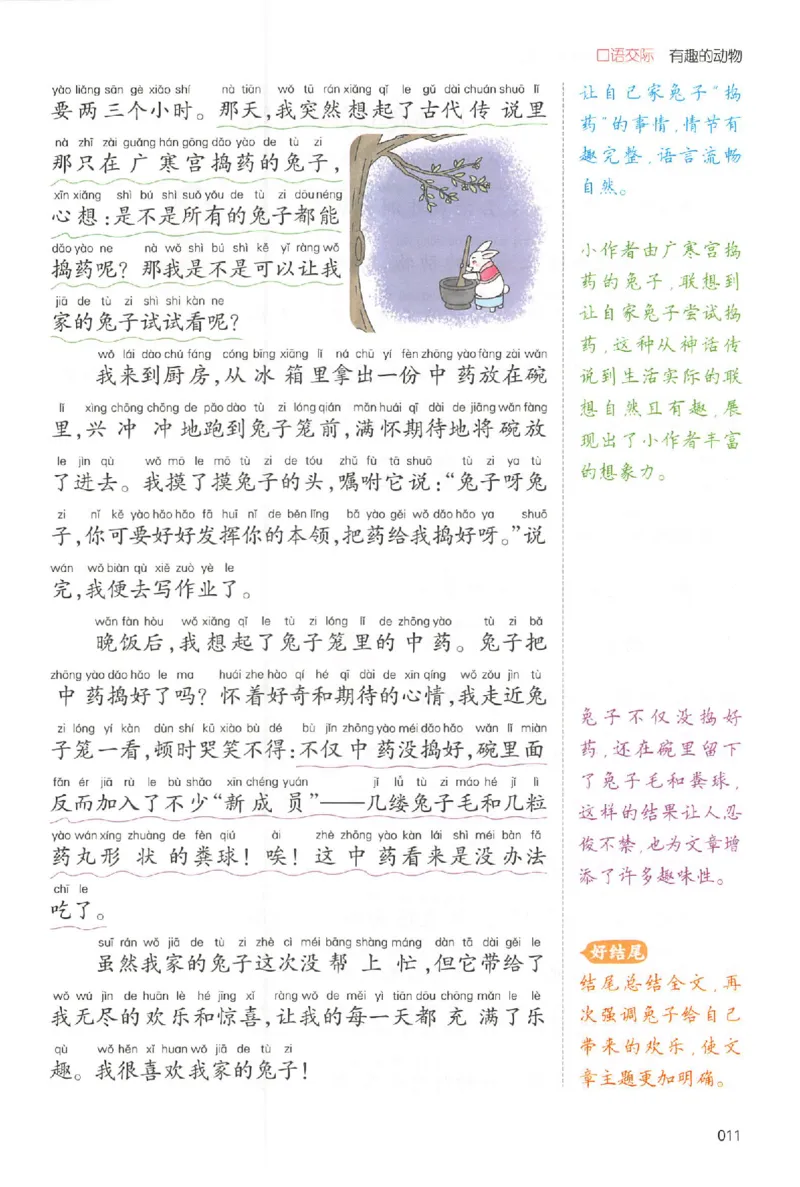 口语交际 有趣的动物
yào liǎng sān gè xiǎo shí nà tiān wǒ tū rán xiǎng qǐ le gǔ dài chuán shuō lǐ
要两三个小时。那天,我突然想起了古代传说里
nà zhī zài guǎng hán gōng dǎo yào de tù zi
那只在广寒宫捣药的兔子,
xīn xiǎng shì bú shì suǒ yǒu de tù zi dōu néng
心想:是不是所有的兔子都能
dǎo yào ne nà wǒ shì bú shì kě yǐ ràng wǒ
捣药呢?那我是不是可以让我
jiā de tù zi shì shi kàn ne
家的兔子试试看呢?
wǒ lái dào chú fáng cóng bīng xiāng lǐ ná chū yí fèn zhōng yào fàng zài wǎn
我来到厨房,从冰箱里拿出一份中药放在碗
lǐ xìng chōng chōng de pǎo dào tù zi lóng qián mǎn huái qī dài de jiāng wǎn fàng
里,兴冲冲地跑到兔子笼前,满怀期待地将碗放
le jìn qù wǒ mō le mō tù zi de tóu zhǔ fù tā shuō tù zi ya tù
了进去。我摸了摸兔子的头,嘱咐它说:“兔子呀兔
zi nǐ kě yào hǎo hǎo fā huī nǐ de běn lǐng bǎ yào gěi wǒ dǎo hǎo ya shuō
子,你可要好好发挥你的本领,把药给我捣好呀。”说
wán wǒ biàn qù xiě zuò yè le
完,我便去写作业了。
wǎn fàn hòu wǒ xiǎng qǐ le tù zi lóng lǐ de zhōng yào tù zi bǎ
晚饭后,我想起了兔子笼里的中药。兔子把
zhōng yào dǎo hǎo le ma huái zhe hào qí hé qī dài de xīn qíng wǒ zǒu jìn tù
中药捣好了吗?怀着好奇和期待的心情,我走近兔
zi lóng yí kàn dùn shí kū xiào bù dé bù jǐn zhōng yào méi dǎo hǎo wǎn lǐ miàn
子笼一看,顿时哭笑不得:不仅中药没捣好,碗里面
fǎn ér jiā rù le bù shǎo xīn chéng yuán jǐ lǚ tù zi máo hé jǐ lì
反而加入了不少“新成员”——几缕兔子毛和几粒
yào wán xíng zhuàng de fèn qiú ài zhè zhōng yào kàn lái shì méi bàn fǎ
药丸形状的粪球!唉!这中药看来是没办法
chī le
吃了。
suī rán wǒ jiā de tù zi zhè cì méi bāng shàng máng dàn tā dài gěi le
虽然我家的兔子这次没帮上忙,但它带给了
wǒ wú jìn de huān lè hé jīng xǐ ràng wǒ de měi yì tiān dōu chōng mǎn le lè
我无尽的欢乐和惊喜,让我的每一天都充满了乐
qù wǒ hěn xǐ huan wǒ jiā de tù zi
趣。我很喜欢我家的兔子!
让自己家兔子“捣
药”的事情,情节有
趣完整,语言流畅
自然。
小作者由广寒宫捣
药的兔子,联想到
让自家兔子尝试捣
药,这种从神话传
说到生活实际的联
想自然且有趣,展
现出了小作者丰富
的想象力。
兔子不仅没捣好
药,还在碗里留下
了兔子毛和粪球,
这样的结果让人忍
俊不禁,也为文章增
添了许多趣味性。
好结尾
结尾总结全文,再
次强调兔子给自己
带来的欢乐,使文
章主题更加明确。
011